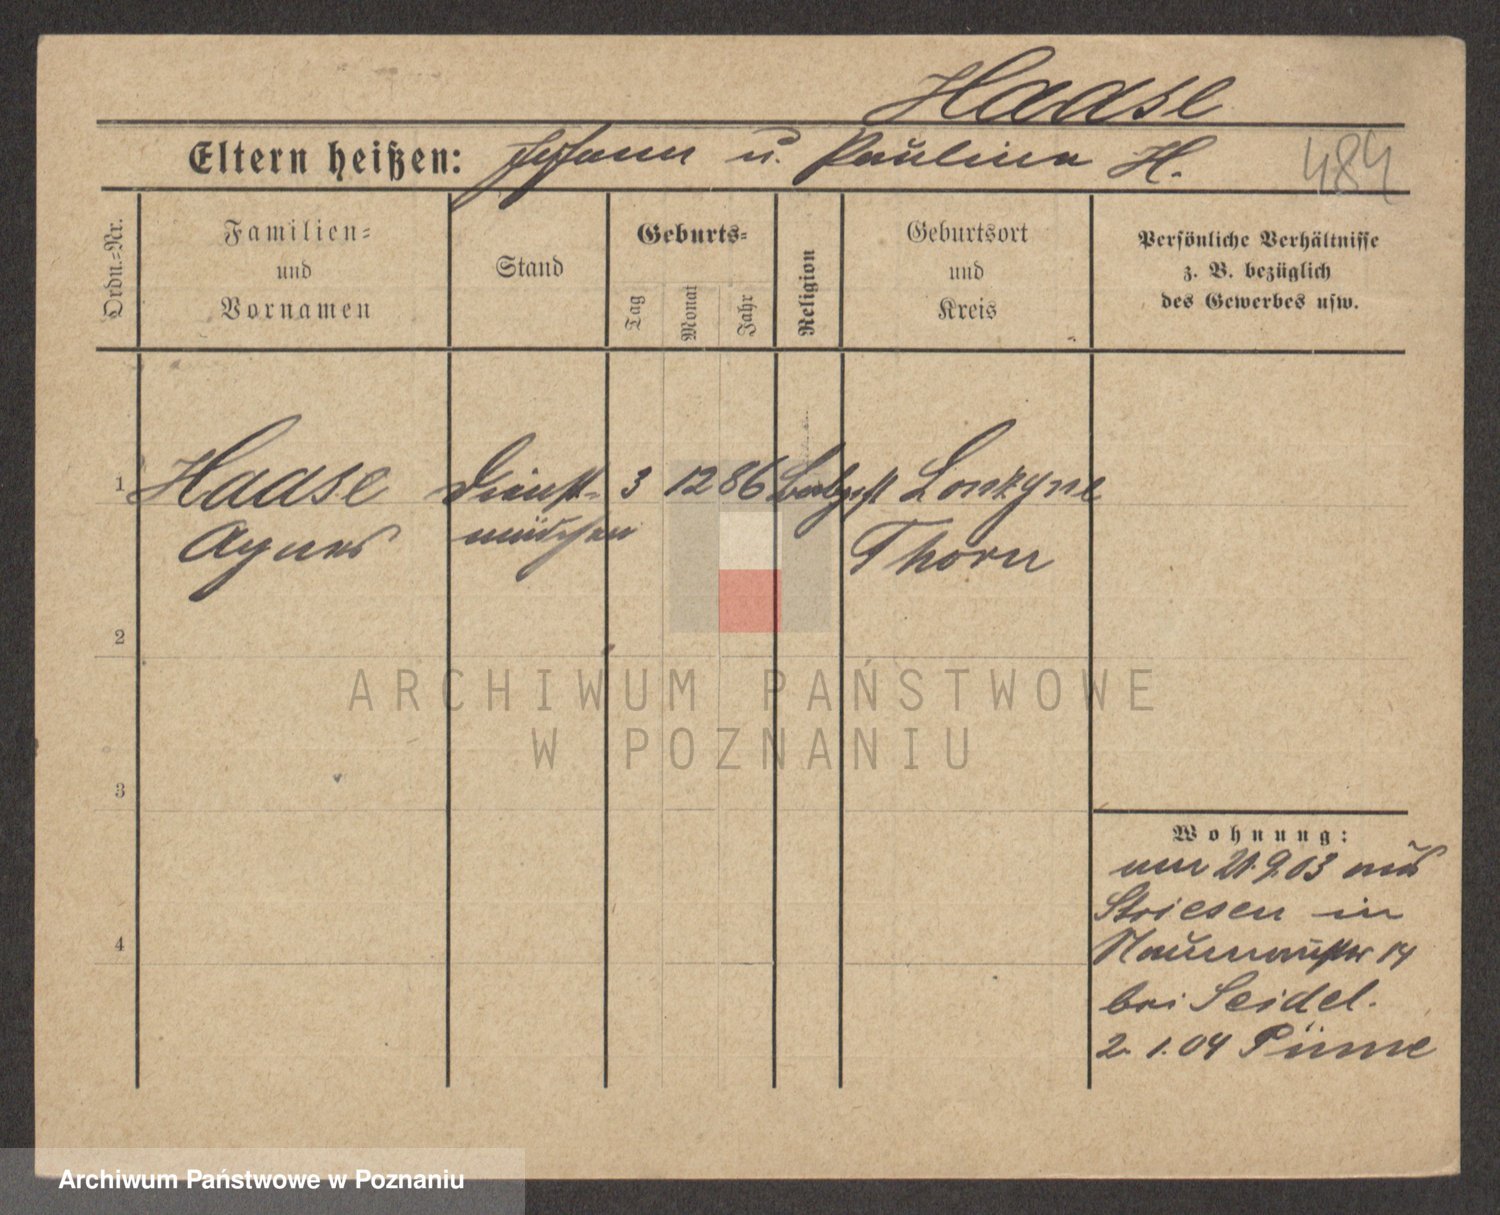 Haase
Eltern heißen: Johann u. Paulina H.
484
Ordn.-Nr.
Familien-
und
Vornamen
Stand
Geburts-
Tag
Monat
Jahr
Religion
Geburtsort
und
Kreis
Persönliche Verhältnisse
z. B. bezüglich
des Gewerbes usw.
1 Haase Dienst- 3 12 86
Agnes mädchen Thorn
2
3
4
ARCHIWUM PAŃSTWOWE
W POZNANIU
Wohnung:
am 21.9.03 aus
Striesen in
14
bei Seidel.
2. 1. 04 Pinne
Archiwum Państwowe w Poznaniu